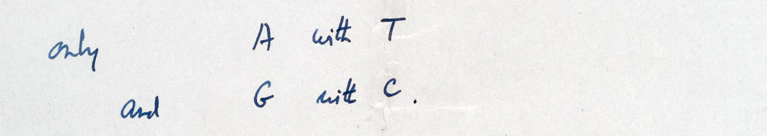 only A with T
and G with C.